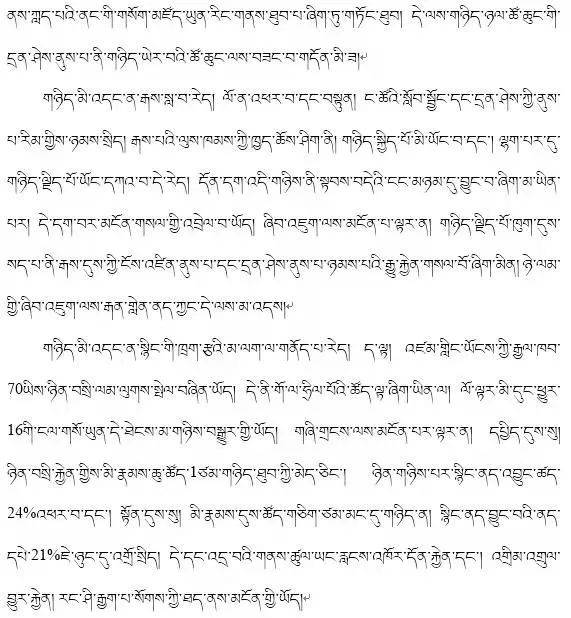 ནས་ཀླད་པའི་ནང་གི་གསོག་མཛོད་ཡུན་རིང་གནས་ཐུབ་པ་ཞིག་ཏུ་གཏོང་ཐུབ། དེ་ལས་གཉིད་ཉལ་ཚོ་ཆུང་གི་
དྲན་ཤེས་ནུས་པ་ནི་གཉིད་ཡེར་བའི་ཚོ་ཆུང་ལས་བཟང་བ་གདོན་མི་ཟ།
གཉིད་མི་འདང་ན་རྒས་སླ་བ་རེད། ལོ་ན་འཕར་བ་དང་བསྟུན། ང་ཚོའི་སློབ་སྦྱོང་དང་དྲན་ཤེས་ཀྱི་ནུས་
པ་རིམ་གྱིས་ཉམས་སྲིད། རྒས་པའི་ལུས་ཁམས་ཀྱི་ཁྱད་ཆོས་ཤིག་ནི། གཉིད་སྐྱིད་པོ་མི་ཡོང་བ་དང་། ལྷག་པར་དུ་
གཉིད་ལྗིད་པོ་ཡོང་དཀའ་བ་དེ་རེད། དོན་དག་འདི་གཉིས་ནི་སྟབས་བདེའི་ངང་མཉམ་དུ་བྱུང་བ་ཞིག་མ་ཡིན་
པར། དེ་དག་བར་མངོན་གསལ་གྱི་འབྲེལ་བ་ཡོད། ཞིབ་འཇུག་ལས་མངོན་པ་ལྟར་ན། གཉིད་ལྗིད་པོ་ཁུག་དུས་
སད་པ་ནི་རྒས་དུས་ཀྱི་ངོས་འཛིན་ནུས་པ་དང་དྲན་ཤེས་ནུས་པ་ཉམས་པའི་རྒྱུ་རྐྱེན་གསལ་པོ་ཞིག་མིན། ཉེ་ལམ་
གྱི་ཞིབ་འཇུག་ལས་རྒན་གླེན་ནད་ཀྱང་དེ་ལས་མ་འདས།
གཉིད་མི་འདང་ན་སྙིང་གི་ཁྲག་རྩའི་མ་ལག་ལ་གནོད་པ་རེད། ད་ལྟ། འཛམ་གླིང་ཡོངས་ཀྱི་རྒྱལ་ཁབ་
70ཡིས་ཉིན་བསྲི་ལམ་ལུགས་སྤེལ་བཞིན་ཡོད། དེ་ནི་གོ་ལ་ཧྲིལ་པོའི་ཚོད་ལྟ་ཞིག་ཡིན་ལ། ལོ་ལྟར་མི་དུང་ཕྱུར་
16གི་ངལ་གསོ་ཡུན་དེ་ཐེངས་མ་གཉིས་བསྒྱུར་གྱི་ཡོད། གཞི་གྲངས་ལས་མངོན་པར་ལྟར་ན། དཔྱིད་དུས་སུ།
ཉིན་བསྲི་རྐྱེན་གྱིས་མི་རྣམས་ཆུ་ཚོད་1ཙམ་གཉིད་ཐུབ་ཀྱི་མེད་ཅིང་། ཉིན་གཉིས་པར་སྙིང་ནད་འབྱུང་ཚད་
24%འཕར་བ་དང་། སྟོན་དུས་སུ། མི་རྣམས་དུས་ཚོད་གཅིག་ཙམ་མང་དུ་གཉིད་ན། སྙིང་ནད་བྱུང་བའི་ནད་
དཔེ་21%ཇེ་ཉུང་དུ་འགྲོ་སྲིད། དེ་དང་འདྲ་བའི་གནས་ཚུལ་ཡང་རླངས་འཁོར་དོན་རྐྱེན་དང་། འགྲིམ་འགྲུལ་
བྱུར་རྐྱེན། རང་ཤི་རྒྱག་པ་སོགས་ཀྱི་ཐད་ནས་མངོན་གྱི་ཡོད།